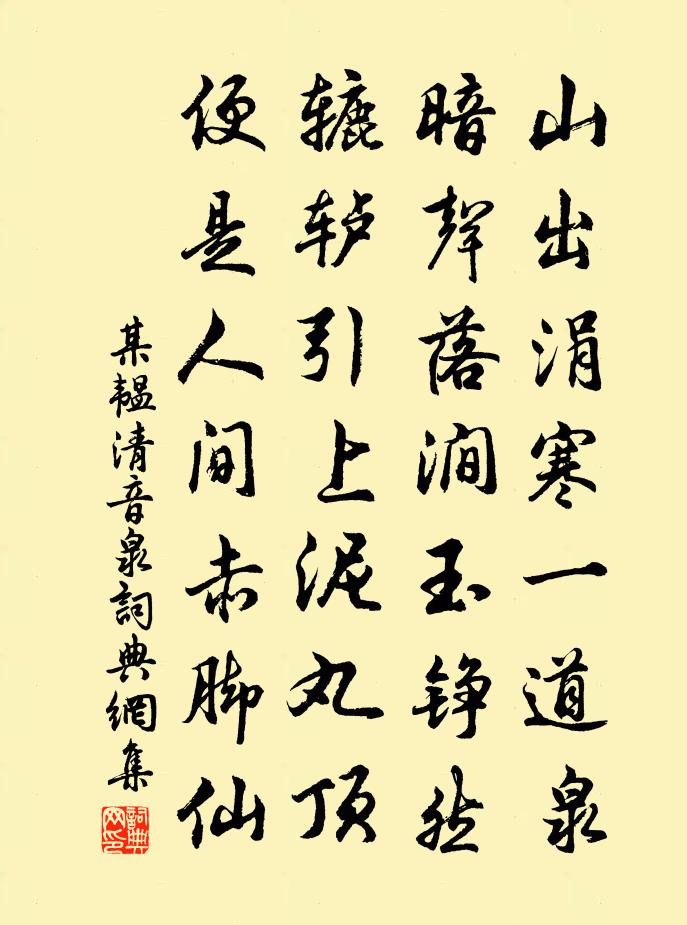 山出涓寒一道泉
暗聲落澗玉铮然
辘轳引上泥丸顶
便是人间赤脚仙
某韞清音泉詞典網集
詞典
网印